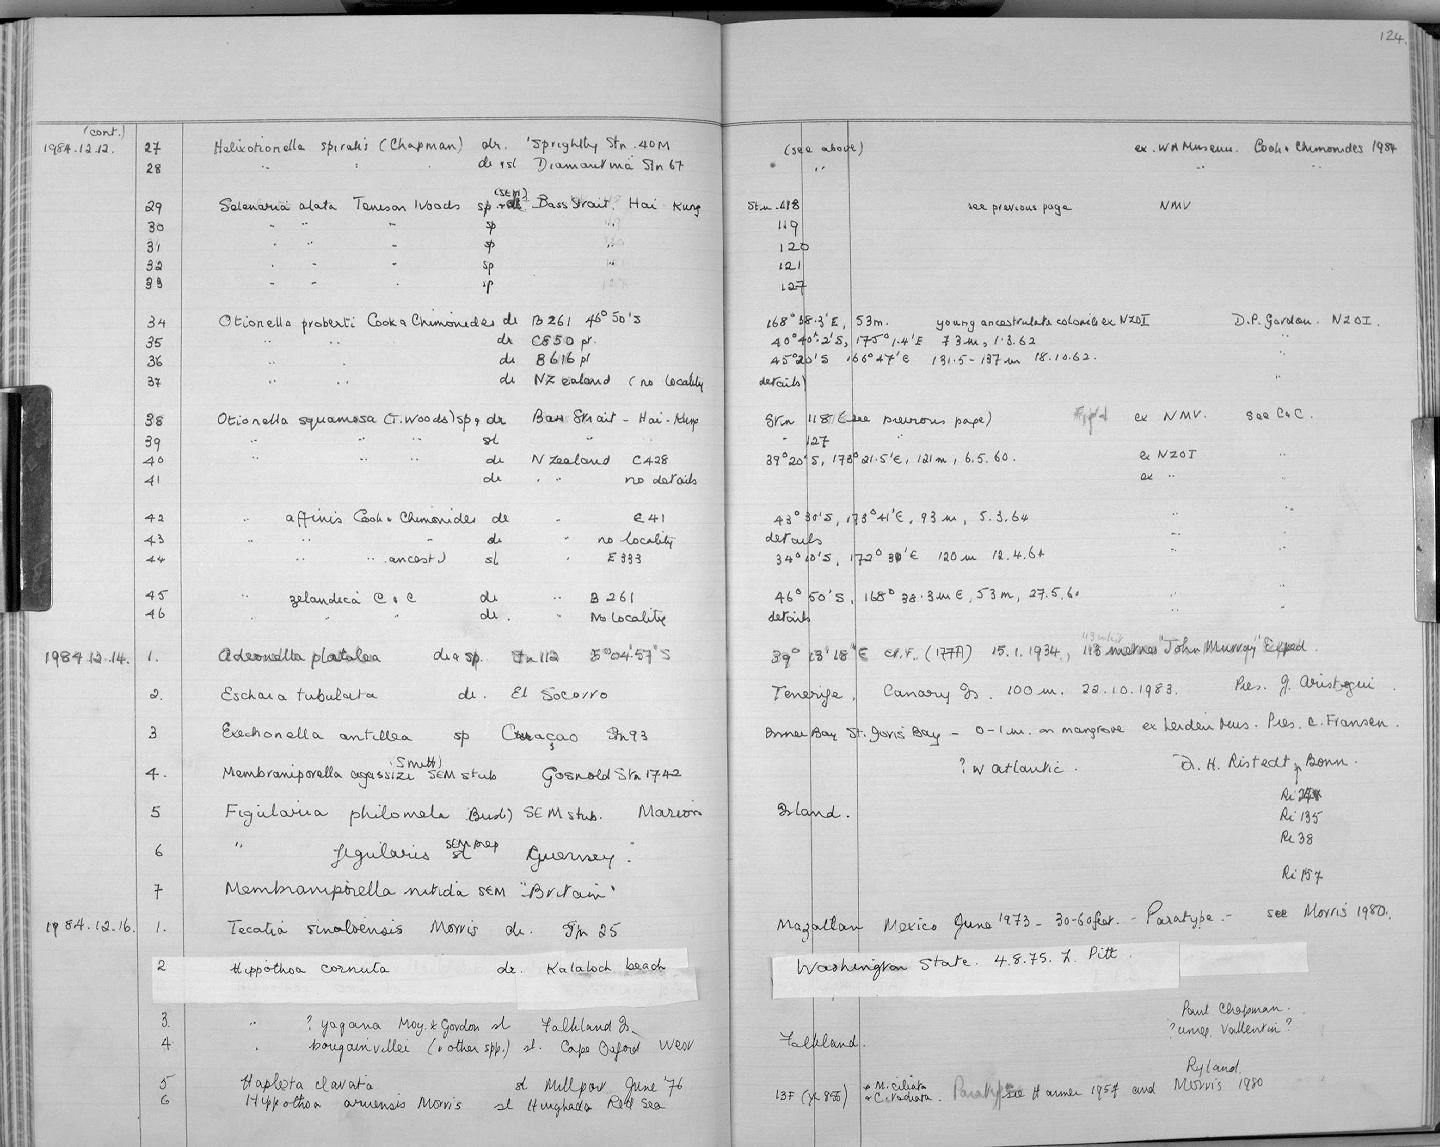 124.
(cont.)
1984.12.12. 27 Helixotionella spiralis (Chapman) dr. 'Sprightly Stn. 40M (see above) ex. WA Museum. Cook & Chimonides 1984
28 " " . dr & sl Diamantina Stn 67 " " "
29 Selenaria alata Tenison Woods sp (SEM) Bass Strait. Hai Kung Stn. 118 see previous page NMV
30 " " " sp " 119
31 " " " sp " 120
32 " " " sp " 121
33 " " " sp 127
34 Otionella proberti Cook & Chimonides dr B261 46°50'S 168°38.3'E, 53m. young ancestrulate colonies ex NZOI D.P. Gordon. NZOI.
35 " " dr C850 pr. 40°40.2'S, 175°1.4'E 73m, 1.3.62 "
36 " " dr B616 pl 45°20'S 166°47'E 131.5-137m 18.10.62. "
37 " " dr NZealand (no locality details) "
38 Otionella squamosa (T. Woods) sp & dr Bass Strait - Hai-Kung Stn 118 (see previous page) Figd ex NMV. see C&C.
39 " " " sl " " 127 "
40 " " " dr N Zealand C428 39°20'S, 173°21.5'E, 121m, 6.5.60. ex NZOI "
41 dr " " no details ex "
42 " affinis Cook & Chimonides dr " C41 43°30'S, 173°41'E, 93m, 5.3.64 " "
43 " " " dr " no locality details " "
44 " " " ancest) sl E333 34°10'S, 172°30'E 120m 12.4.64 " "
45 " zelandica C&C dr " B261 46°50'S, 168°38.3mE, 53m, 27.5.60 "
46 " " " dr. " No locality details " "
1984.12.14. 1. Adeonella platalea dr & sp. Stn 112 5°04'57"S 39°13'18"E (177A) 15.1.1934, 113 metres "John Murray" Exped.
2. Eschara tubulata dr. El Socorro Tenerife, Canary Is. 100m. 22.10.1983. Pres. J. Aristegui.
3 Exechonella antillea sp Curaçao Stn 93 Inner Bay St. Joris Bay - 0-1m. on mangrove ex Leiden Mus. Pres. C. Fransen.
4. Membraniporella agassizi (Smitt) SEM stub Gosnold Stn 1742 ? W atlantic. D. H. Ristedt, Bonn.
5 Figularia philomela Busk) SEM stub. Marion Island. Ri 135
6 " figularis SEM prep sl Guernsey. Ri 38
7 Membraniporella nitida SEM "Britain" Ri 157
1984.12.16. 1. Tecatia sinaloensis Morris dr. Stn 25 Mazatlan Mexico June 1973 - 30-60feet. - Paratype. - see Morris 1980.
2 Hippothoa cornuta dr. Kalaloch beach Washington State. 4.8.75. L. Pitt.
3. " ? yagana Moy. & Gordon sl Falkland Is. Paul Chapman.
? unreg. Vallentin?
4 . bougainvillei (& other spp.) sl. Cape Orford West Falkland.
Ryland.
5 Haplota clavata sl Millport June '76
6 Hippothoa aruensis Morris sl Hurghada Red Sea 13F & M. ciliata & C. radiata. Paratype see Harmer 1957 and Morris 1980